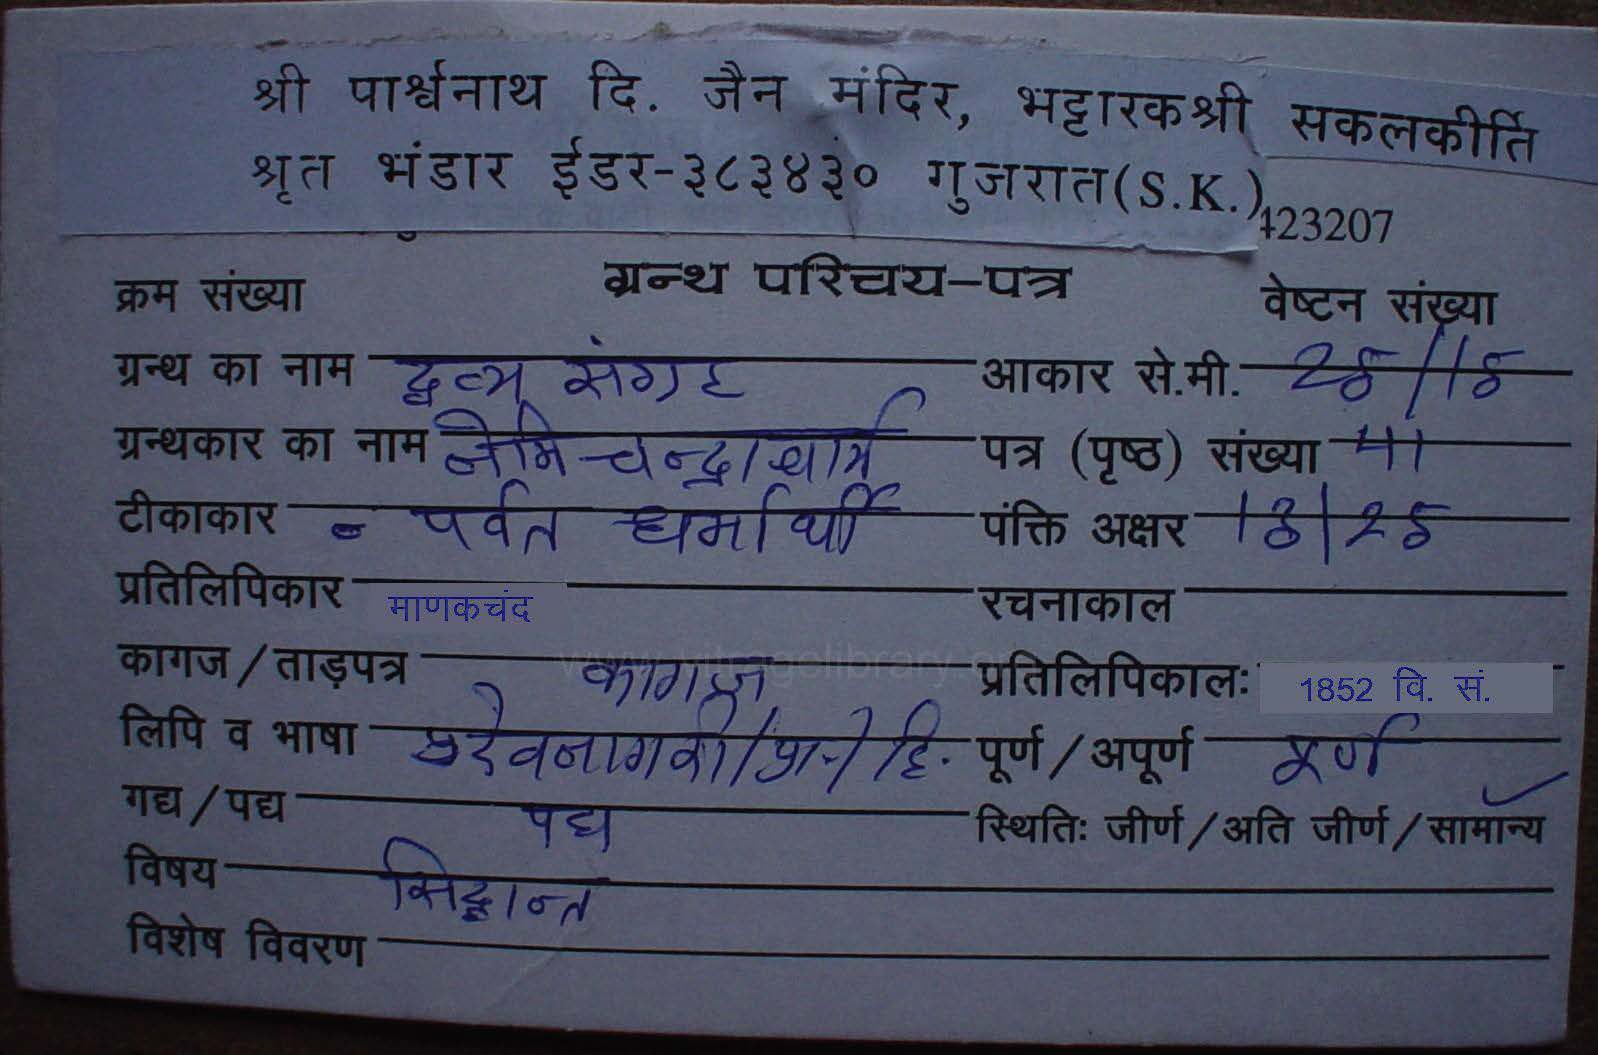 श्री पार्श्वनाथ दि. जैन मंदिर, भट्टारकश्री सकलकीर्ति
श्रृत भंडार ईडर-३८३४३० गुजरात(S.K.)
23207
क्रम संख्या ग्रन्थ परिचय-पत्र वेष्टन संख्या
ग्रन्थ का नाम द्रव्य संग्रह आकार से.मी.
ग्रन्थकार का नाम नेमिचन्द्राचार्य पत्र (पृष्ठ) संख्या 41
टीकाकार पर्वत धर्मार्थी पंक्ति अक्षर
प्रतिलिपिकार माणकचंद रचनाकाल
कागज/ताड़पत्र कागज प्रतिलिपिकालः 1852 वि. सं.
लिपि व भाषा देवनागरी/प्रा./हि. पूर्ण/अपूर्ण पूर्ण
गद्य/पद्य पद्य स्थितिः जीर्ण/अति जीर्ण/सामान्य
विषय सिद्धान्त
विशेष विवरण